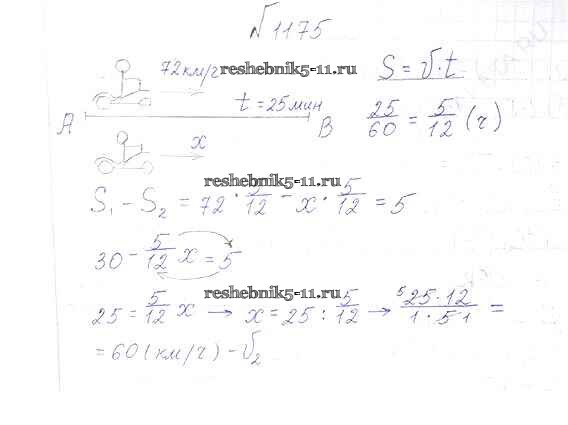 √1175
72км/ч reshebnik5-11.ru S = v·t
t = 25мин
A B 25/60 = 5/12 (ч)
x
reshebnik5-11.ru
S₁ - S₂ = 72 · 5/12 - x · 5/12 = 5
30 - 5/12 x = 5
reshebnik5-11.ru
25 = 5/12 x → x = 25 : 5/12 → ⁵25·12/1·5 1 =
= 60 (км/ч) - v₂